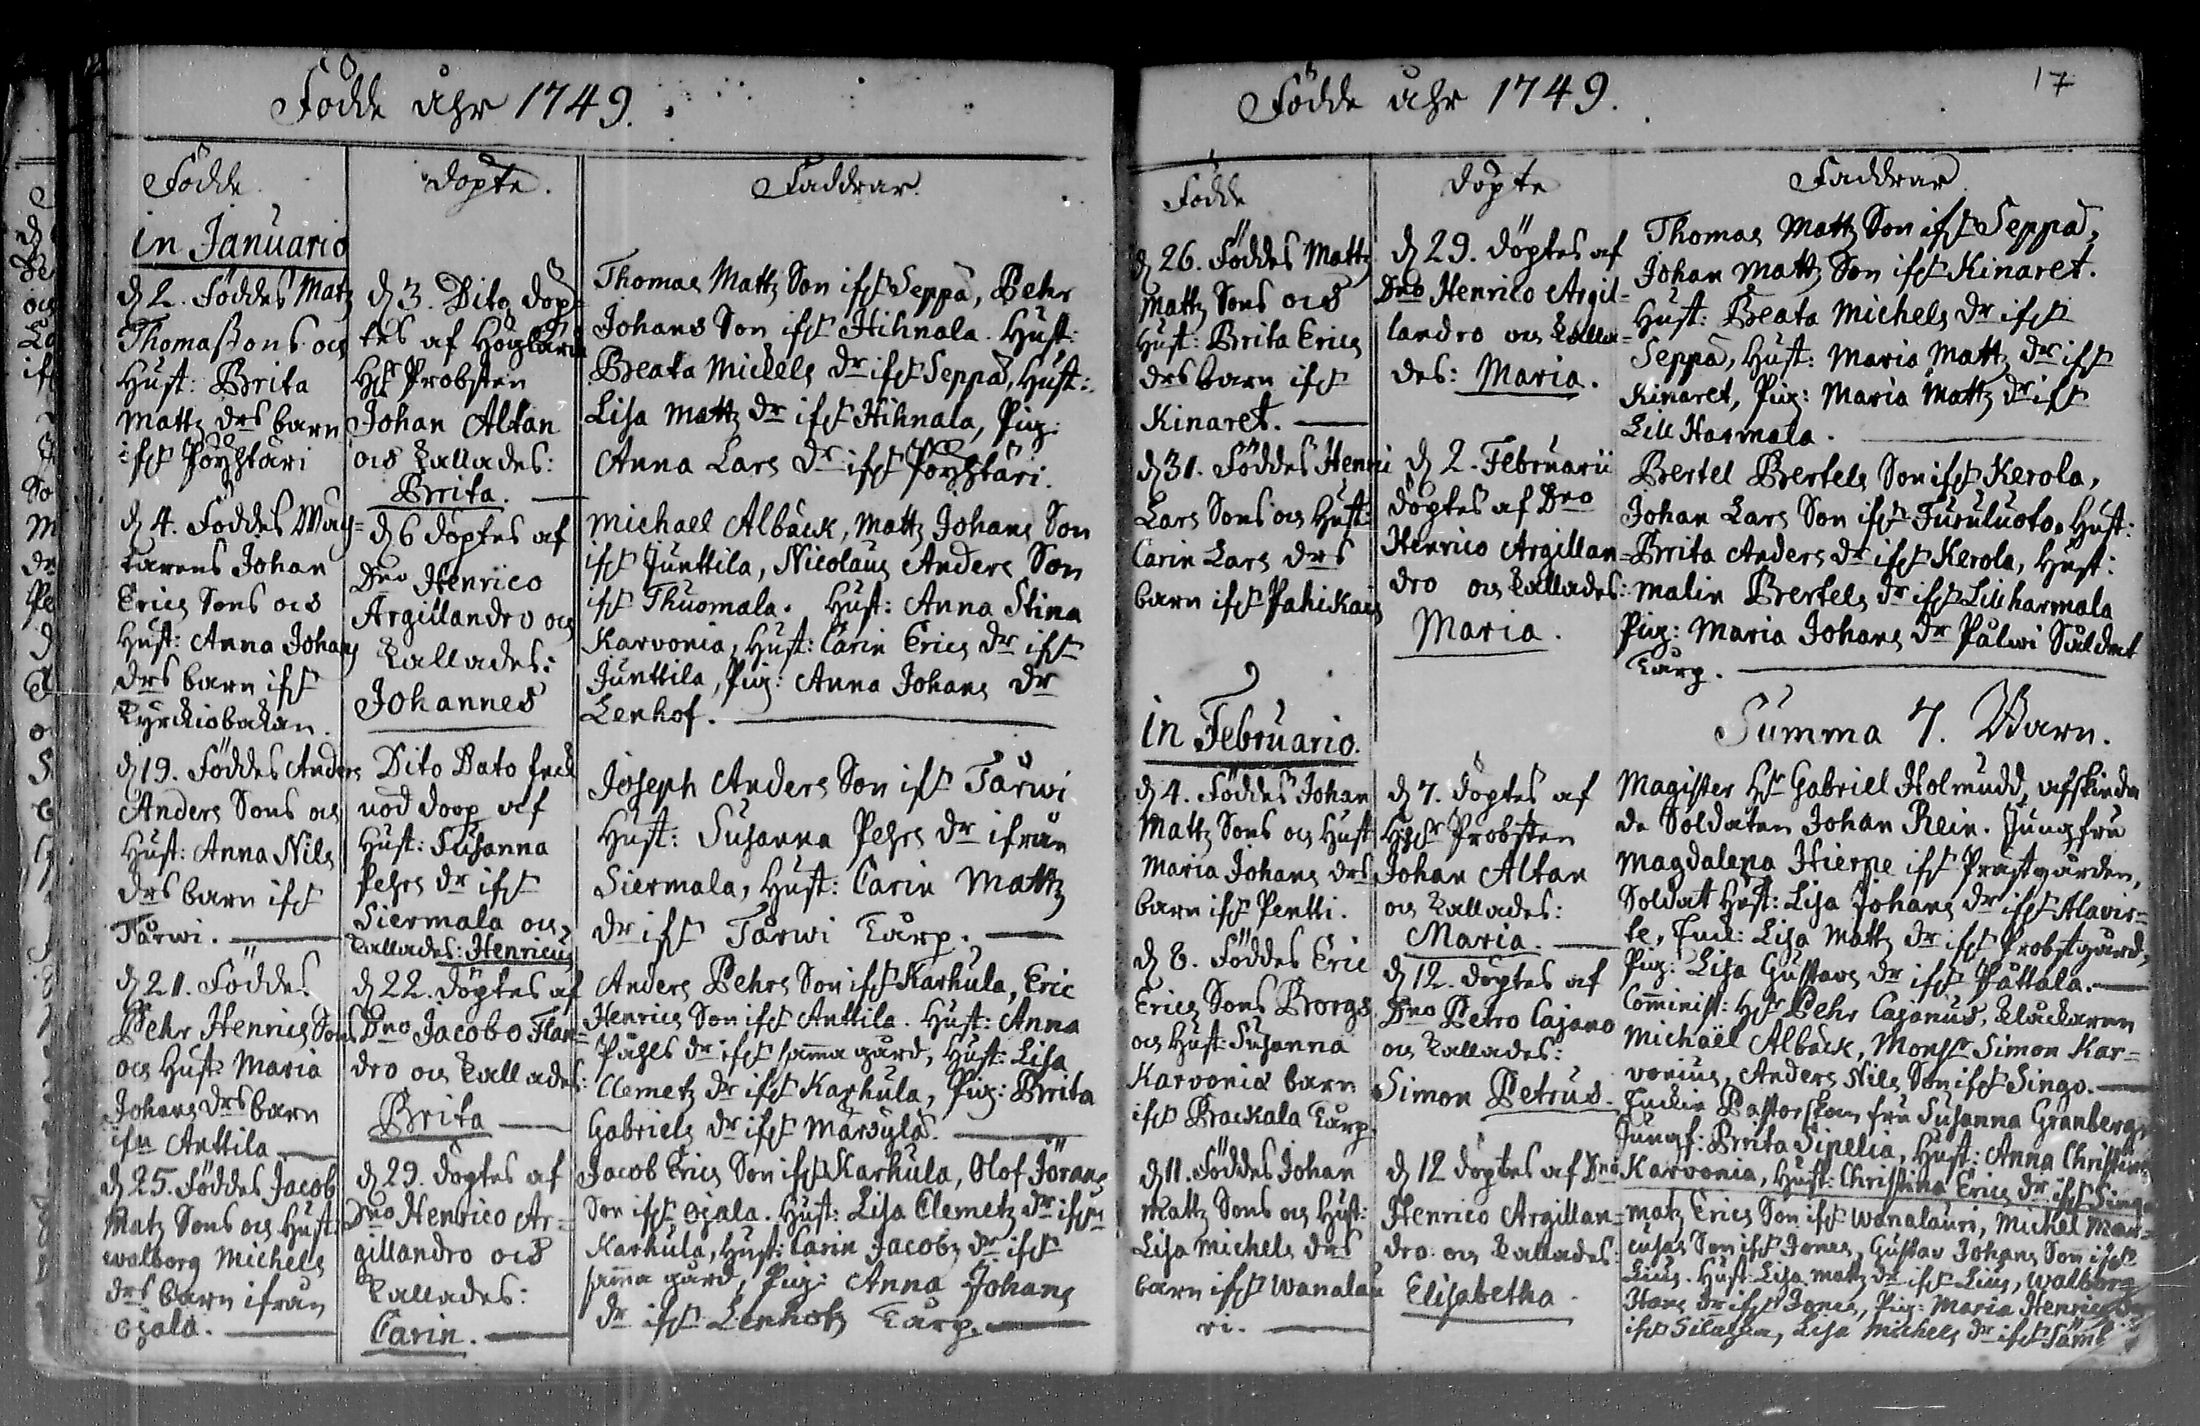 Födde åhr 1749.
Födde
Döpte.
Faddrar.
in Januario
d 2. Föddes Matz
Thomassons och
Hust: Brita
Mattz drs barn
ifr Pöyhtäri
d 3. Dito döp-
tes af Höglärde
Hr Probsten
Johan Altan
och kallades:
Brita.
Thomas Mattz Son ifr Seppä, Pehr
Johans Son ifr Hihnala. Hust:
Beata Michels dr ifr Seppä, Hust:
Lisa Mattz dr ifr Hihnala, Pig:
Anna Lars dr ifr Pöyhtäri.
d 4. Föddes Wäg-
tarens Johan
Erics Sons och
Hust: Anna Johans
drs barn ifr
Kyrckiobakan.
d 6 döptes af
Dno Henrico
Argillandro och
kallades:
Johannes
Michael Albäck, Mattz Johans Son
ifr Junttila, Nicolaus Anders Son
ifr Thuomala. Hust: Anna Stina
Karvonia, Hust: Carin Erics dr ifr
Junttila, Pig: Anna Johans dr
Lenhof.
d 19. Föddes Anders
Anders Sons och
Hust: Anna Nils
drs barn ifr
Tårwi.
Dito Dato feck
nöd doop af
Hust: Susanna
Pehrs dr ifr
Siermala och
kallades: Henricus
Joseph Anders Son ifr Tårwi
Hust: Susanna Pehrs dr ifrån
Siermala, Hust: Carin Mattz
dr ifr Tårwi Karp.
d 21. Föddes
Pehr Henrics Sons
och Hust: Maria
Johans drs barn
ifn Anttila
d 22. döptes af
Dno Jacobo Flan-
dro och kallades:
Brita
Anders Pehrs Son ifr Karhula, Eric
Henrics Son ifr Anttila. Hust: Anna
Påhls dr ifr sam̃a gård, Hust: Lisa
Clemetz dr ifr Karhula, Pig: Brita
Gabriels dr ifr Märsylä.
d 25. Föddes Jacob
Matz Sons och Hust:
Walborg Michels
drs barn ifrån
Ojala.
d 29. döptes af
Dno Henrico Ar-
gillandro och
kallades:
Carin.
Jacob Erics Son ifr Karhula, Olof Jörans
Son ifr Ojala. Hust: Lisa Clemetz dr ifrn
Karhula, Hust: Carin Jacobs dr ifr
sam̃a gård, Pig: Anna Johans
dr ifr Lenhotz Karp.
17
Födde åhr 1749.
Födde
Döpte
Faddrar
d 26. Föddes Mattz
Mattz Sons och
Hust: Brita Erics
drs barn ifr
Kinaret.
d 29. döptes af
Dno Henrico Argil-
landro och kalla-
des: Maria.
Thomas Mattz Son ifr Seppä,
Johan Mattz Son ifr Kinaret.
Hust: Beata Michels dr ifr
Seppä, Hust: Maria Mattz dr ifr
Kinaret, Pig: Maria Mattz dr ifr
Lill Harmala.
d 31. Föddes Henric
Lars Sons och Hust:
Carin Lars drs
barn ifr Pahikais
d 2. Februarii
döptes af Dno
Henrico Argillan-
dro och kallades:
Maria.
Bertel Bertels Son ifr Kerola,
Johan Lars Son ifr Furuluoto. Hust:
Brita Anders dr ifr Kerola, Hust:
Malin Bertels dr ifr Lill harmala
Pig: Maria Johans dr Palwi Såldat
Karp.
Summa 7. Barn.
in Februario.
d 4. Föddes Johan
Mattz Sons och Hust:
Maria Johans drs
barn ifr Pentti.
d 7. döptes af
Hr Probsten
Johan Altan
och kallades:
Maria.
Magister Hr Gabriel Holmudd, afskieda
de Soldaten Johan Rein. Jungfru
Magdalena Hierpe ifr Prästgården,
Soldat Hust: Lisa Johans dr ifr Alavir-
te, Enck: Lisa Mattz dr ifr Probstgård,
Pig: Lisa Gustavs dr ifr Påttala.
d 8. Föddes Eric
Erics Sons Borgs
och Hust: Susanna
Karvonia barn
ifr Brackala Karp.
d 12. döptes af
Dno Petro Cajano
och kallades:
Simon Petrus.
Com̃inist: Hr Pehr Cajanus, Klåckaren
Michaël Albäck, Monsr Simon Kar-
vonius, Anders Nils Son ifr Singo.
Enckan Pastorskan fru Susanna Granberg,
Jungf: Brita Sipelia, Hust: Anna Christina
Karvonia, Hust: Christina Erics dr ifr Singo
d 11. Föddes Johan
Mattz Sons och Hust:
Lisa Michels drs
barn ifr Wanalau
ri.
d 12 döptes af Dno
Henrico Argillan-
dro och kallades:
Elisabetha.
Matz Erics Son ifr Wanalauri, Michel Mar-
cusas Son ifr Jones, Gustav Johans Son ifr
Lius. Hust: Lisa Mattz dr ifr Lius, Walborg
Hans dr ifr Jones, Pig: Maria Henrics dr
ifr Silasen, Lisa Michels dr ifr